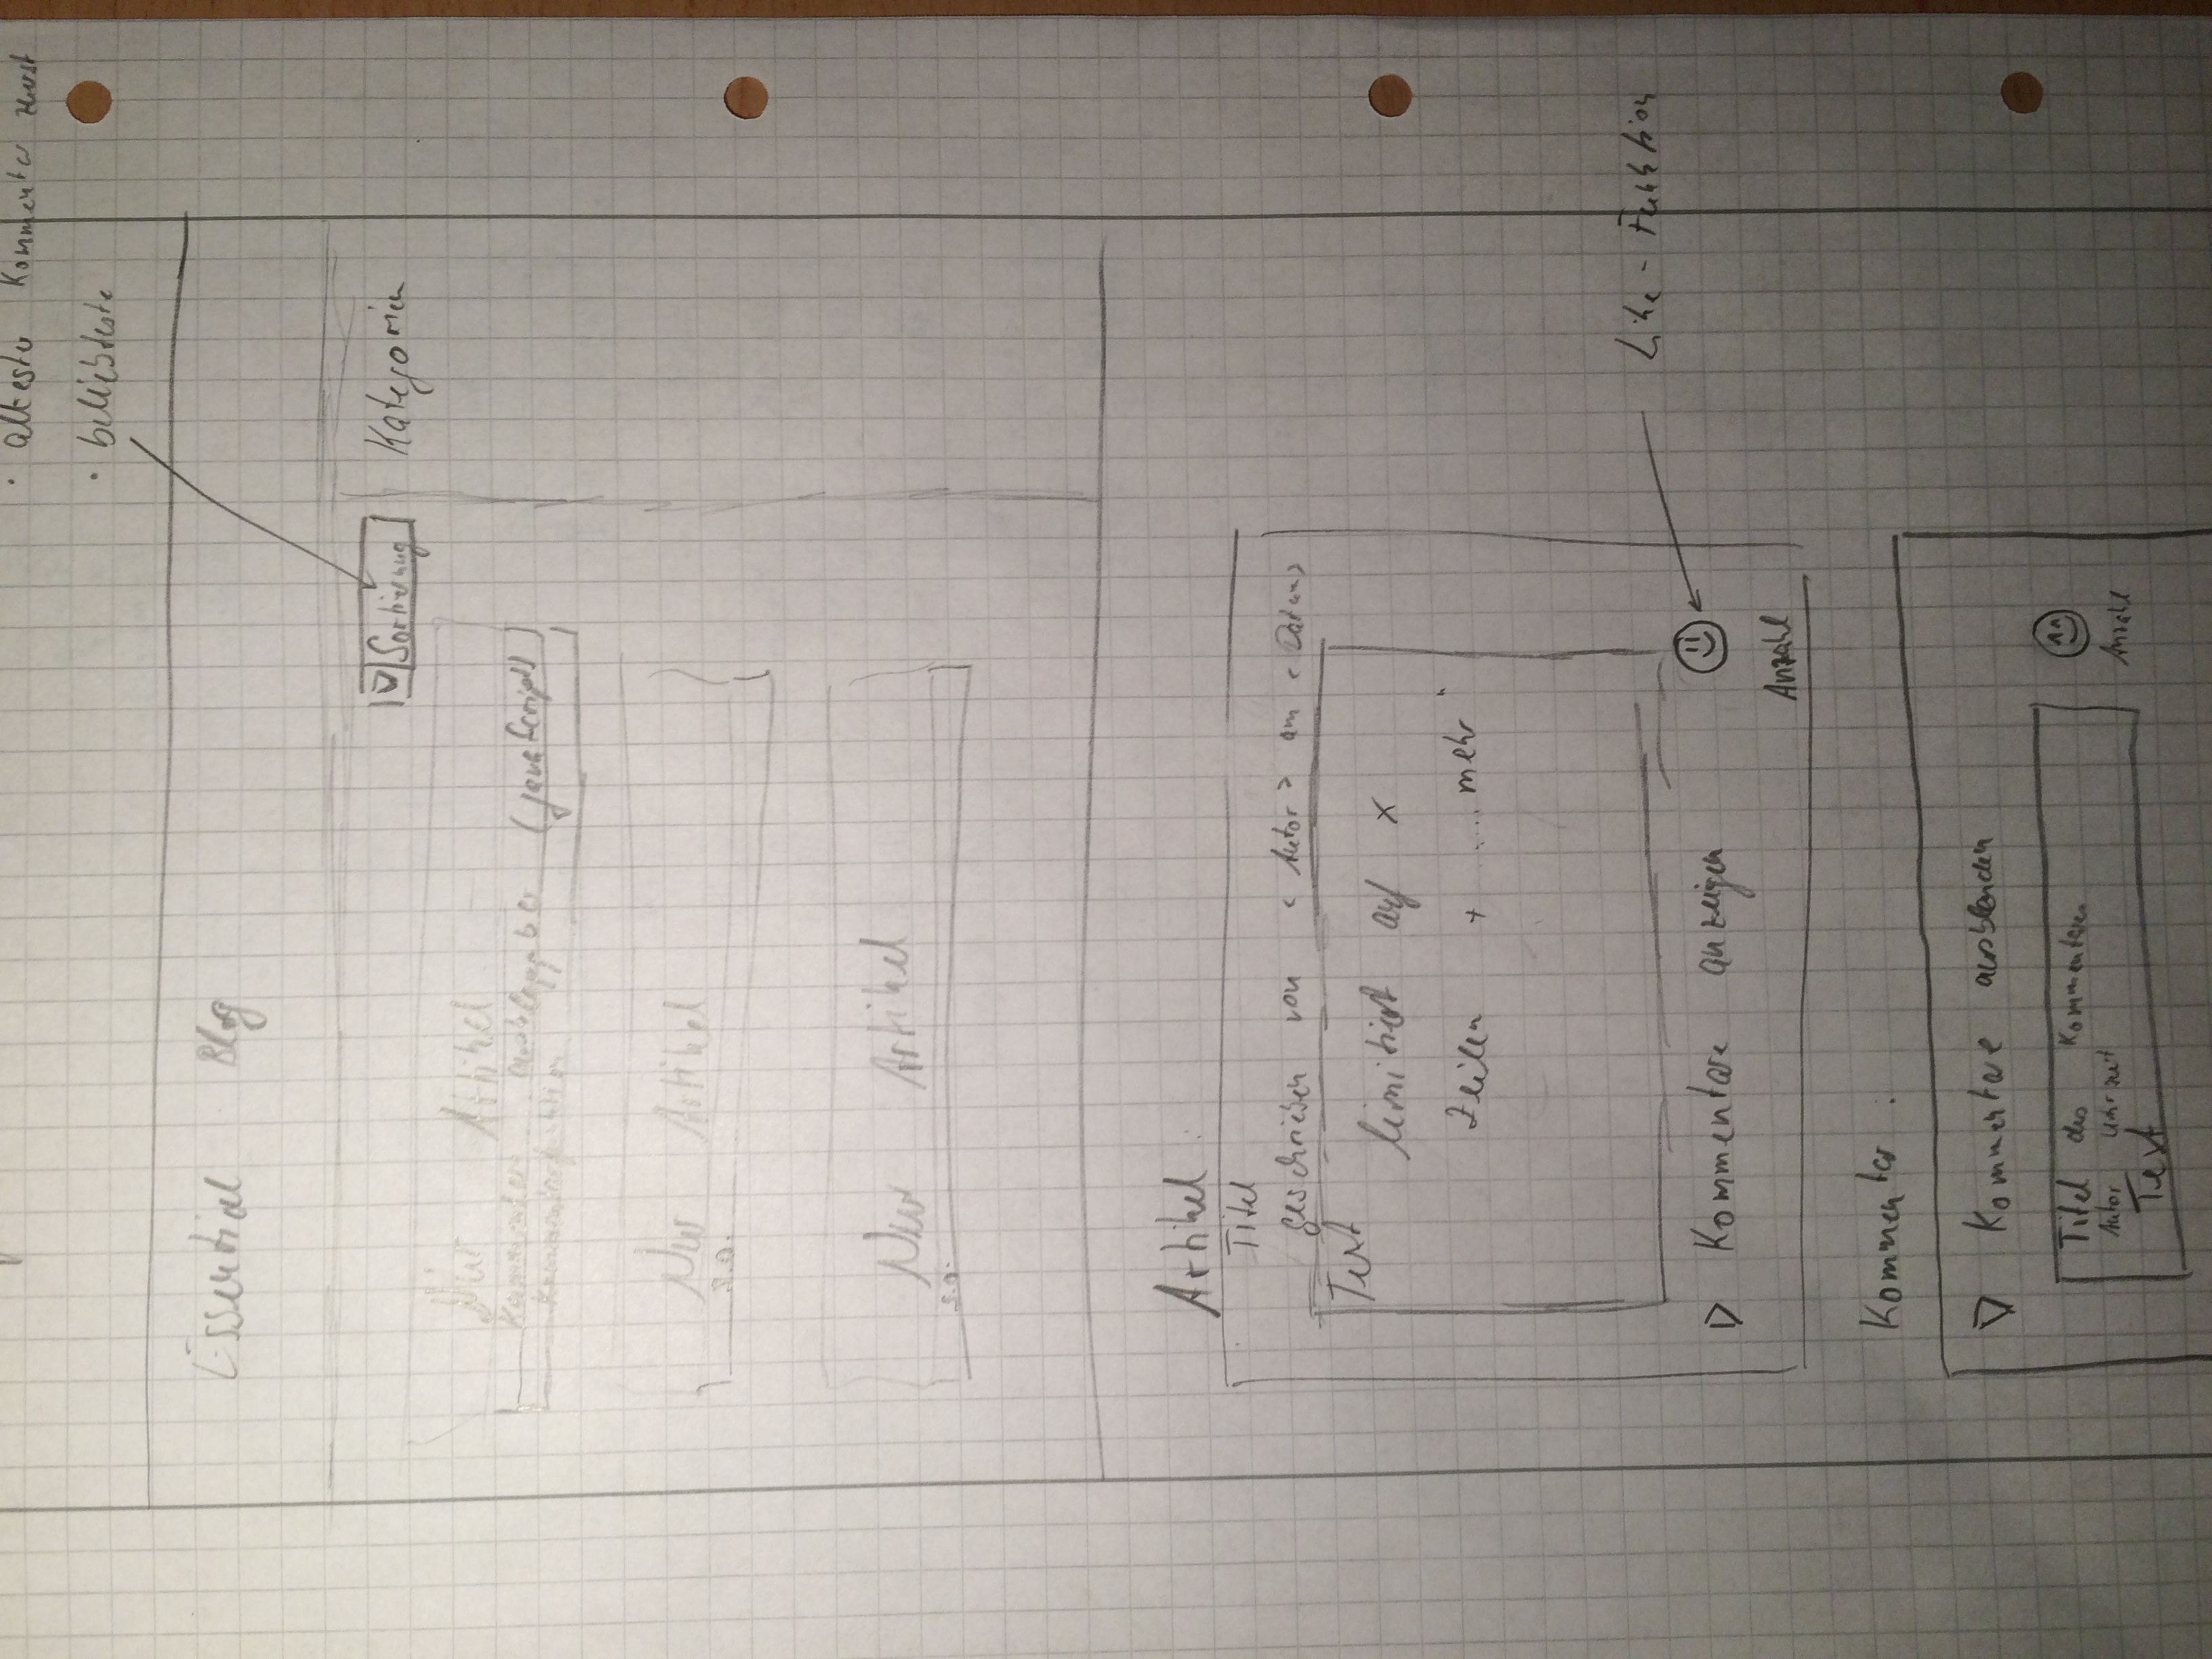 · ältester Kommentar zuerst
· beliebteste
Essential Blog
Sortierung
Kategorien
Artikel
Kommentare ausklappbar (javaScript)
Kommentarfunktion
Neuer Artikel
s.o.
Neuer Artikel
s.o.
Artikel :
Titel
geschrieben von <Autor> am <Datum>
Text
limitiert auf x
Zeilen + ....mehr"
Like-Funktion
▷ Kommentare anzeigen
Anzahl
Kommentar :
▽ Kommentare ausblenden
Titel des Kommentares
Autor Uhrzeit
Text
Anzahl